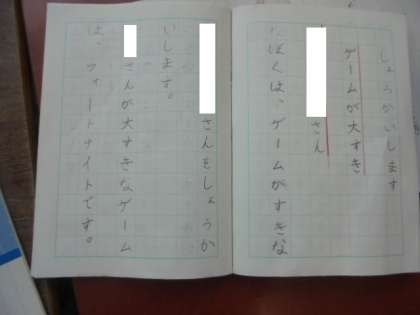 しょうかいします
ゲームが大すき
さん
ぼくは、ゲームがすきな
さんをしょうか
いします。
さんが大すきなゲーム
は、フォートナイトです。